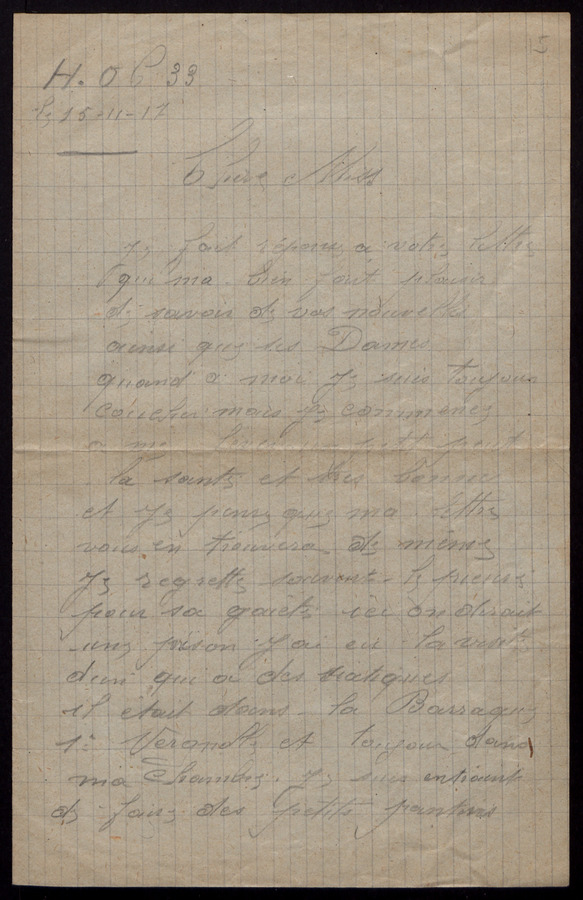 5
H. O C 33
le 15-11-17
Chere Miss
Je fait réponse a votre lettre
qui ma bien fait plaisir
de savoir de vos nouvelle
ainse que ses Dames
quand a moi je suis toujour
coucher mais je commence
a me petit peut
la sante et tres bonne
et je pense que ma lettre
vous en trouvera de même
Je regrette souvent le
pour sa gaiete ici on dirait
une prison J'ai eu la visite
d'un qui a des sciatiques
il etait dans la Barraque
1e Veranda et toujour dans
ma Chambre. Je suis entraint
de faire des petits pantins